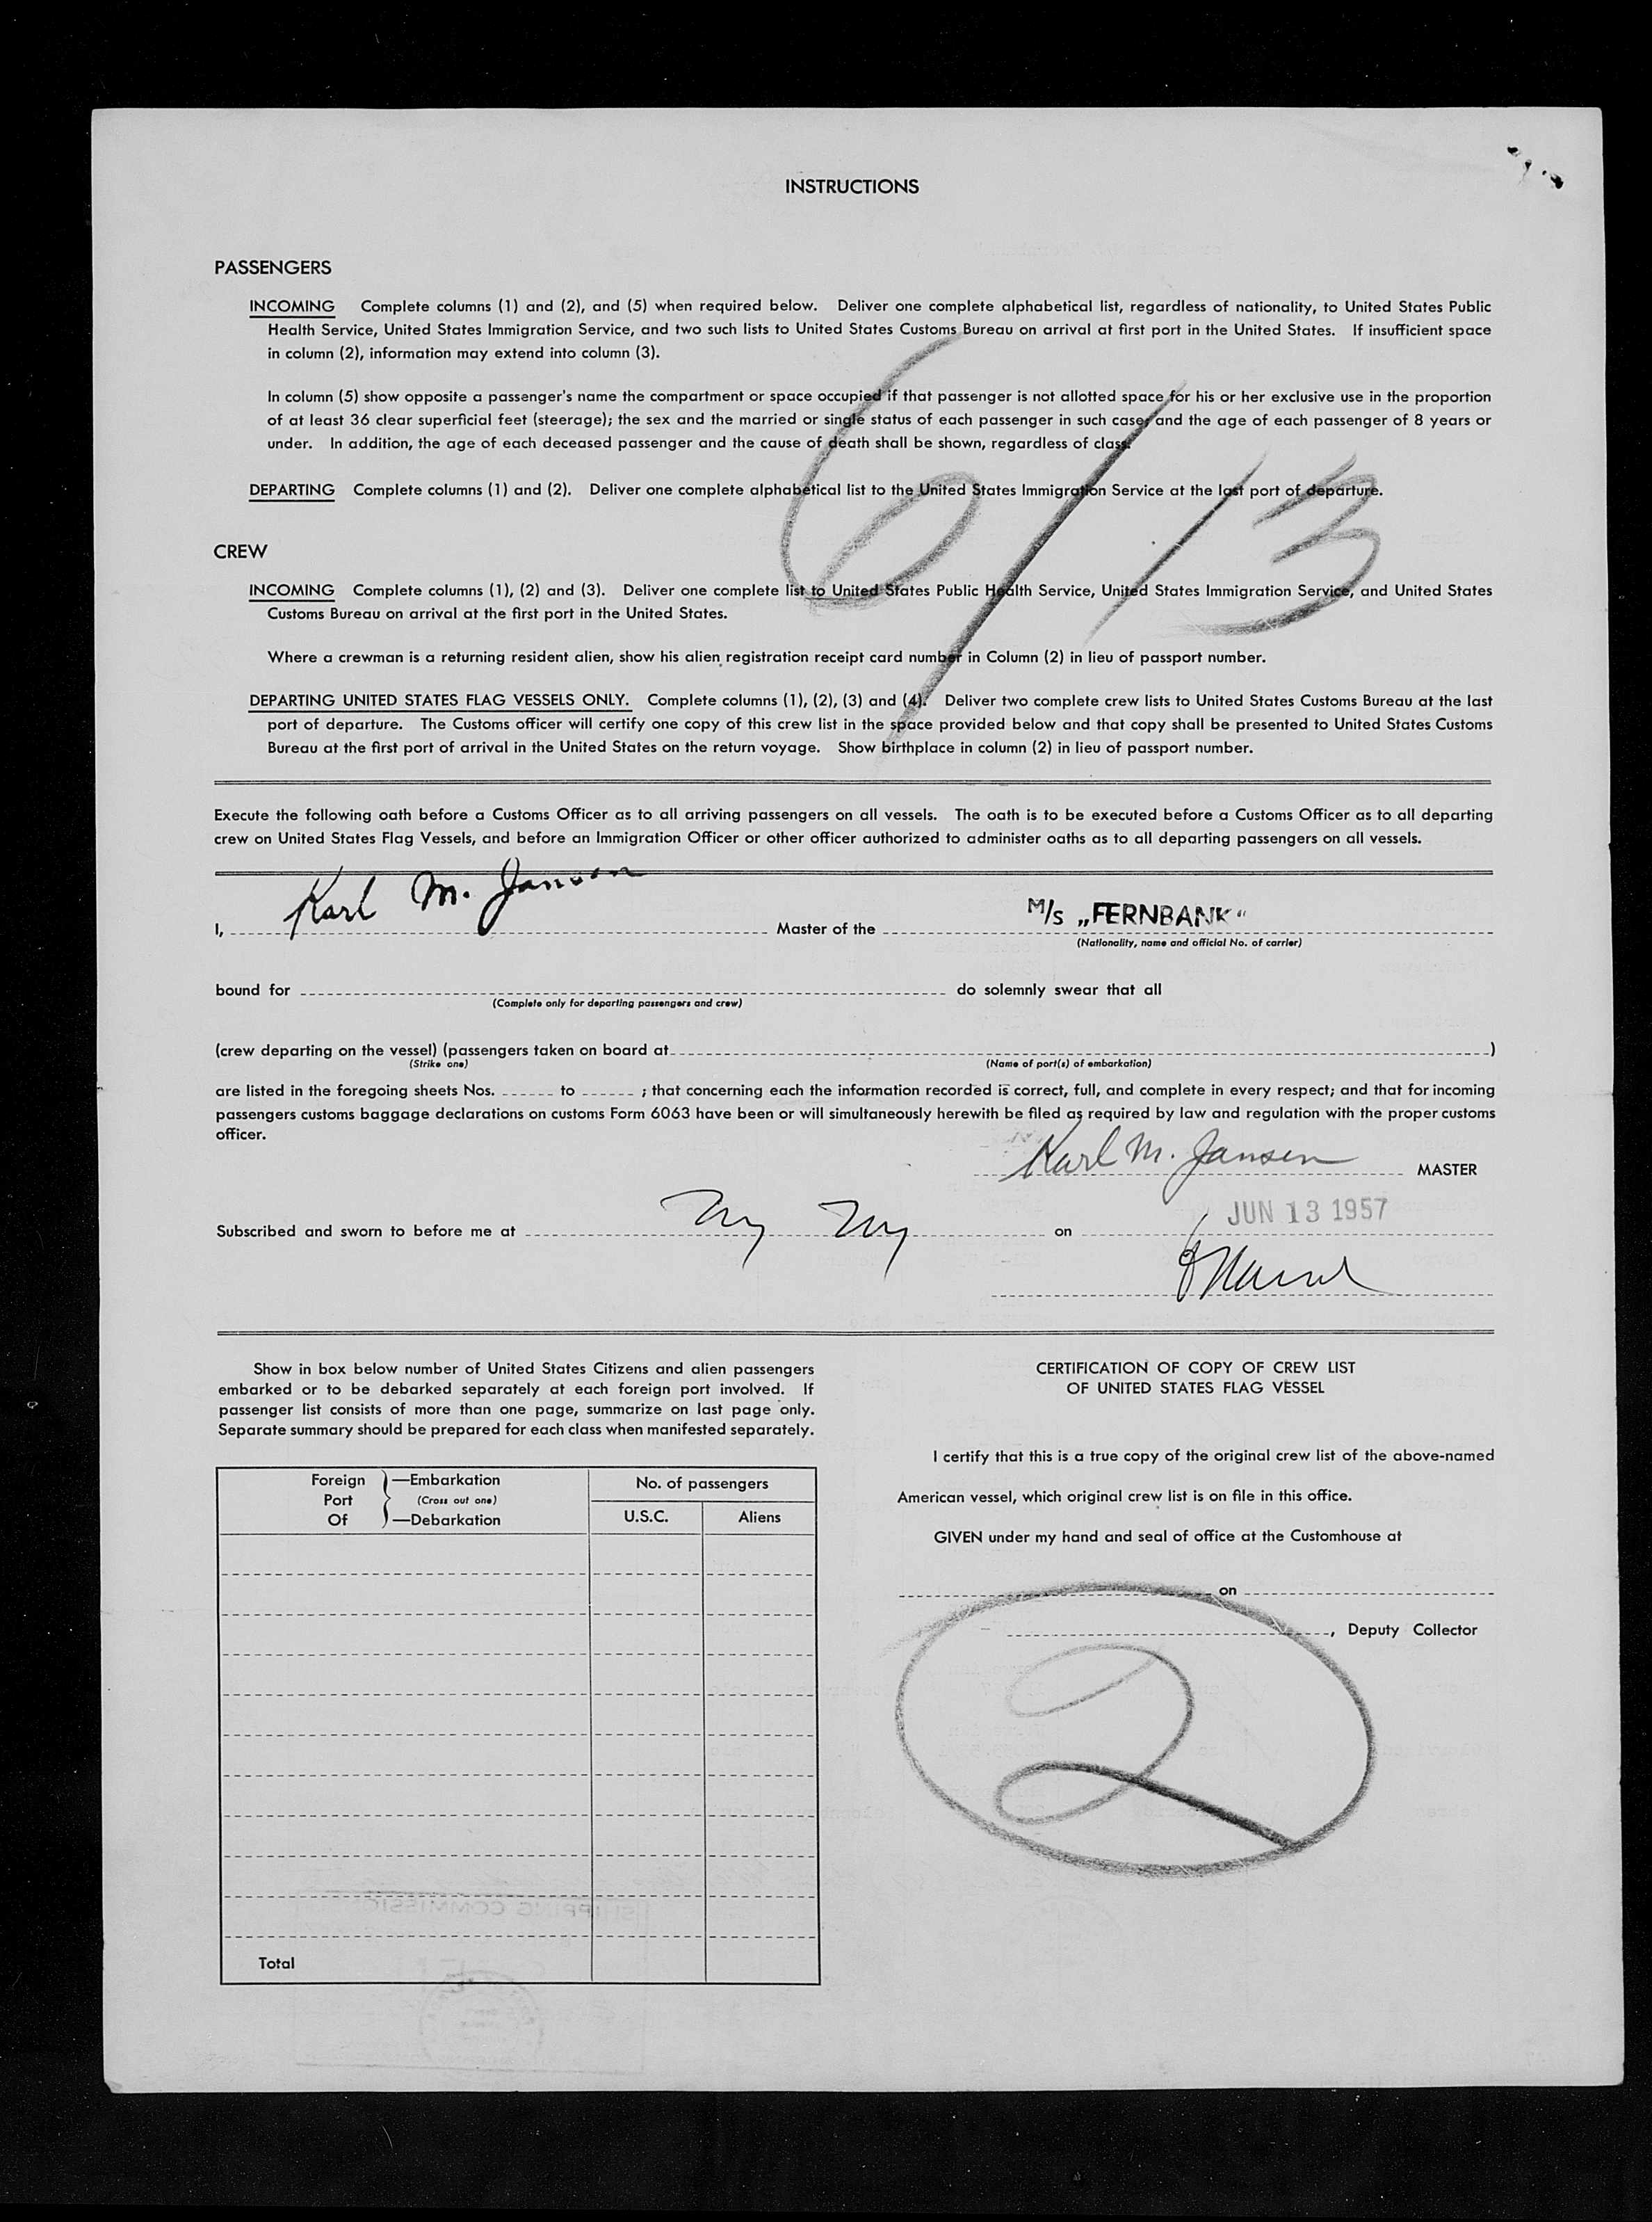 INSTRUCTIONS
PASSENGERS
INCOMING Complete columns (1) and (2), and (5) when required below. Deliver one complete alphabetical list, regardless of nationality, to United States Public
Health Service, United States Immigration Service, and two such lists to United States Customs Bureau on arrival at first port in the United States. If insufficient space
in column (2), information may extend into column (3).
In column (5) show opposite a passenger's name the compartment or space occupied if that passenger is not allotted space for his or her exclusive use in the proportion
of at least 36 clear superficial feet (steerage); the sex and the married or single status of each passenger in such case, and the age of each passenger of 8 years or
under. In addition, the age of each deceased passenger and the cause of death shall be shown, regardless of class.
DEPARTING Complete columns (1) and (2). Deliver one complete alphabetical list to the United States Immigration Service at the last port of departure.
6/13
CREW
INCOMING Complete columns (1), (2) and (3). Deliver one complete list to United States Public Health Service, United States Immigration Service, and United States
Customs Bureau on arrival at the first port in the United States.
Where a crewman is a returning resident alien, show his alien registration receipt card number in Column (2) in lieu of passport number.
DEPARTING UNITED STATES FLAG VESSELS ONLY. Complete columns (1), (2), (3) and (4). Deliver two complete crew lists to United States Customs Bureau at the last
port of departure. The Customs officer will certify one copy of this crew list in the space provided below and that copy shall be presented to United States Customs
Bureau at the first port of arrival in the United States on the return voyage. Show birthplace in column (2) in lieu of passport number.
Execute the following oath before a Customs Officer as to all arriving passengers on all vessels. The oath is to be executed before a Customs Officer as to all departing
crew on United States Flag Vessels, and before an Immigration Officer or other officer authorized to administer oaths as to all departing passengers on all vessels.
I, Karl M. Jansen Master of the M/S „FERNBANK“
(Nationality, name and official No. of carrier)
bound for do solemnly swear that all
(Complete only for departing passengers and crew)
(crew departing on the vessel) (passengers taken on board at )
(Strike one) (Name of port(s) of embarkation)
are listed in the foregoing sheets Nos. to ; that concerning each the information recorded is correct, full, and complete in every respect; and that for incoming
passengers customs baggage declarations on customs Form 6063 have been or will simultaneously herewith be filed as required by law and regulation with the proper customs
officer.
Karl M. Jansen MASTER
Subscribed and sworn to before me at Ny Ny on JUN 13 1957
Show in box below number of United States Citizens and alien passengers
embarked or to be debarked separately at each foreign port involved. If
passenger list consists of more than one page, summarize on last page only.
Separate summary should be prepared for each class when manifested separately.
Foreign —Embarkation No. of passengers
Port (Cross out one)
Of —Debarkation U.S.C. Aliens
Total
CERTIFICATION OF COPY OF CREW LIST
OF UNITED STATES FLAG VESSEL
I certify that this is a true copy of the original crew list of the above-named
American vessel, which original crew list is on file in this office.
GIVEN under my hand and seal of office at the Customhouse at
on
, Deputy Collector
2